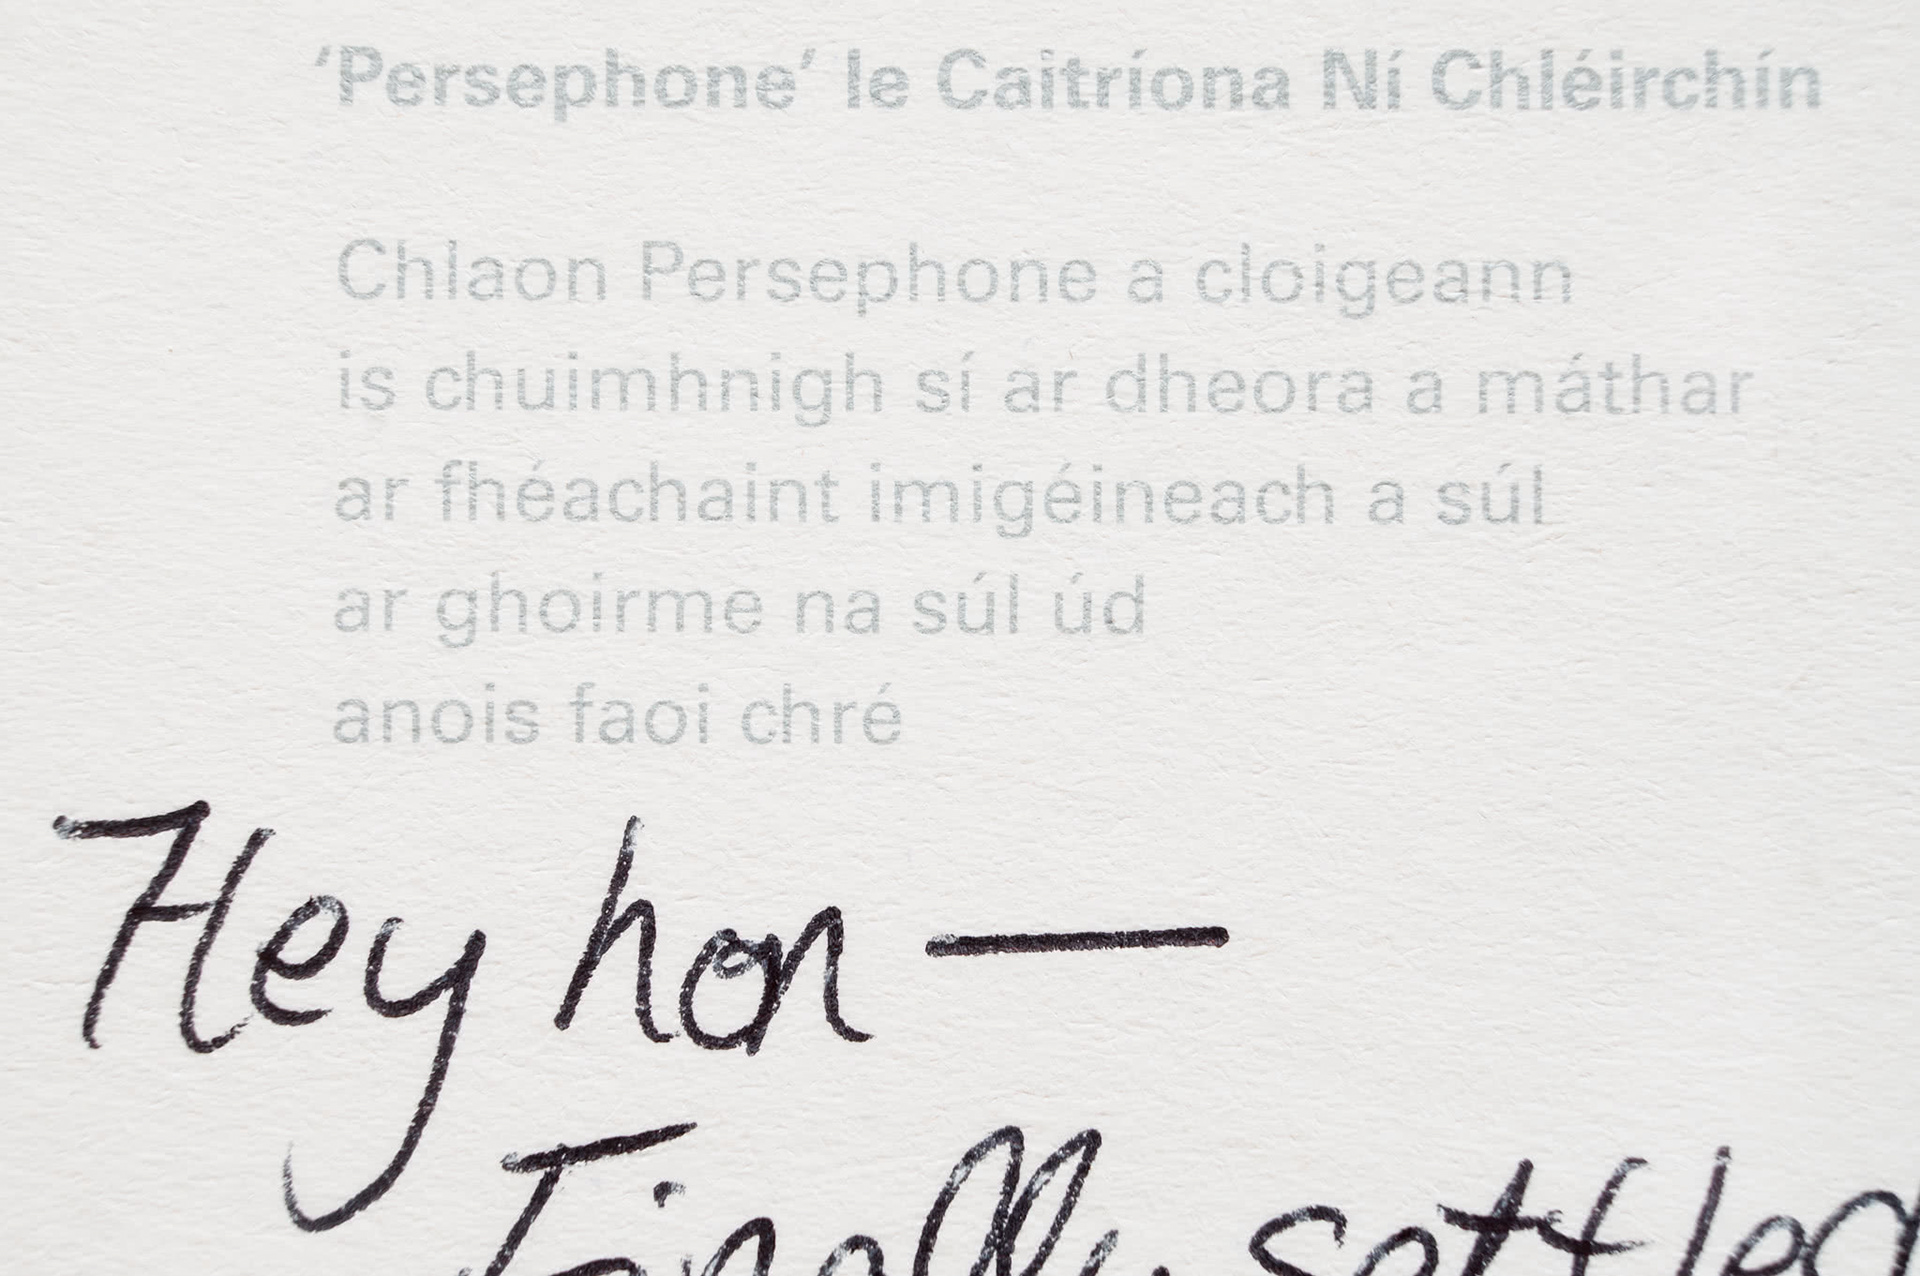 ‘Persephone’ le Caitríona Ní Chléirchín
Chlaon Persephone a cloigeann
is chuimhnigh sí ar dheora a máthar
ar fhéachaint imigéineach a súl
ar ghoirme na súl úd
anois faoi chré
Hey hon —
Finally settled